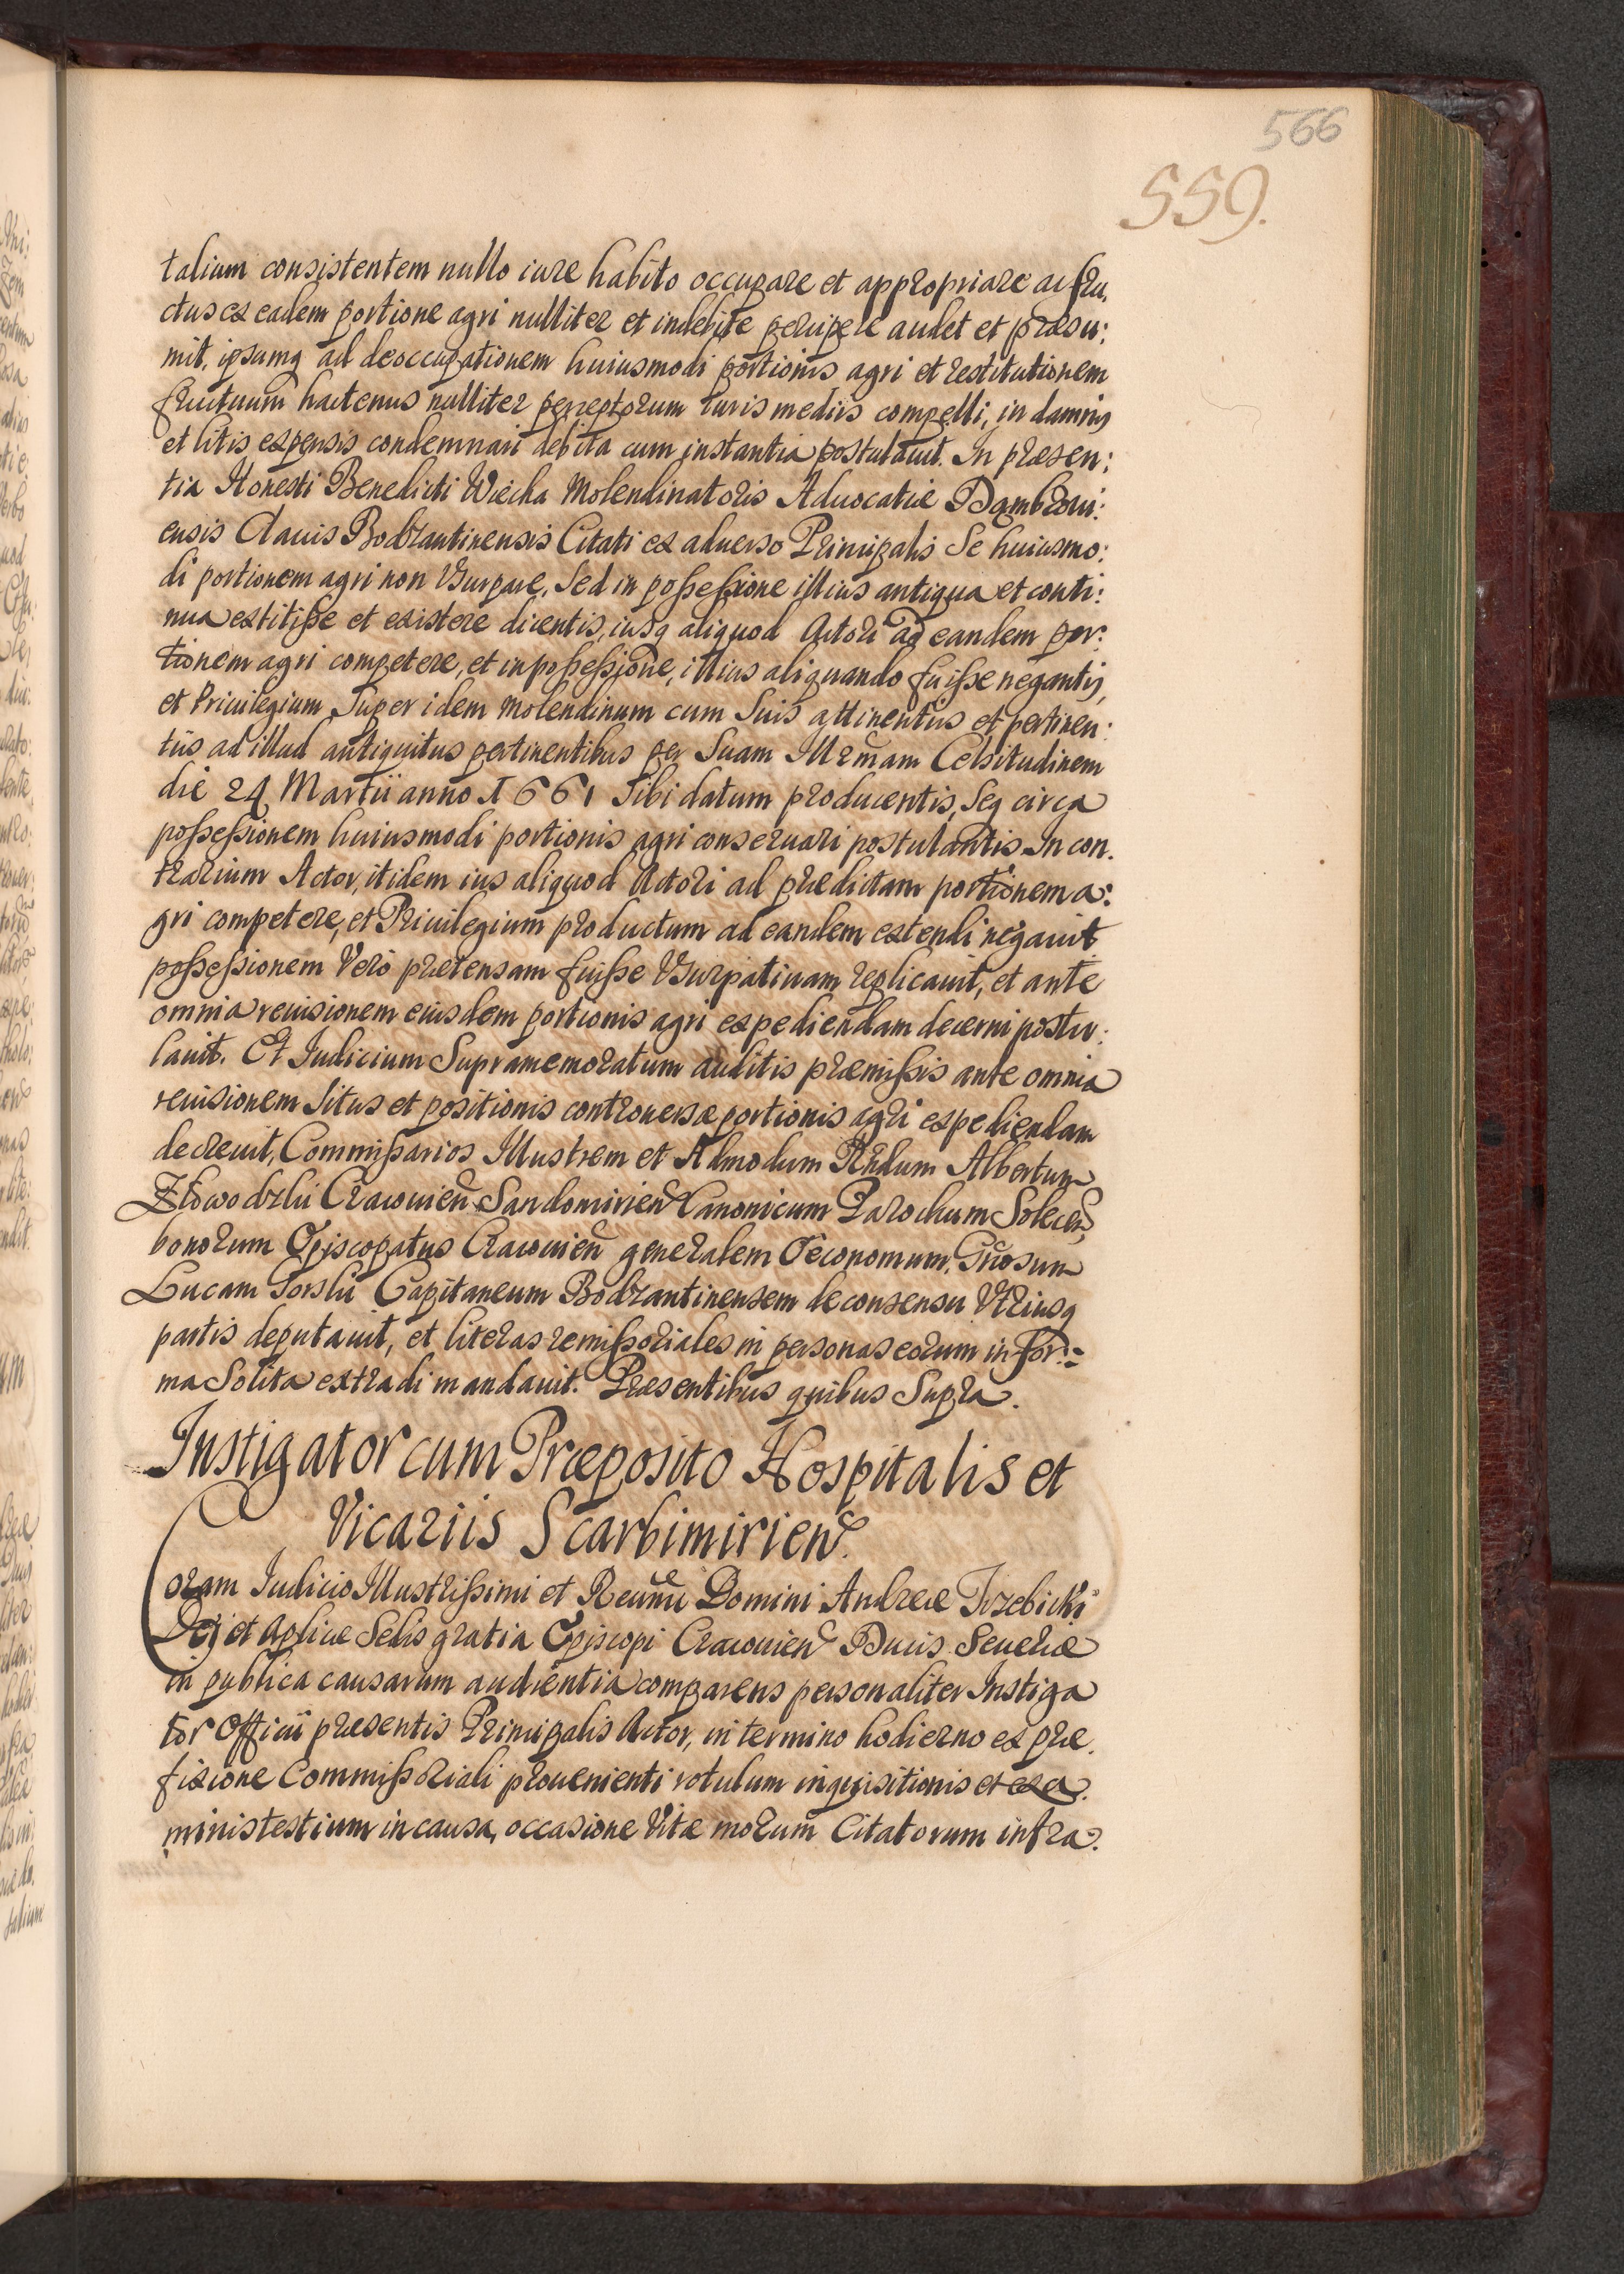 566
559.
talium consistentem nullo iure habito occupare et appropriare ac fru,
ctus ex eadem portione agri nulliter et indebite percipere audet et præsu:
mit, ipsumq ad deoccupationem huiusmodi portionis agri et restitutionem
fructuum hactenus nulliter perceptorum iuris mediis compelli, in damnis
et litis expensis condemnari debita cum instantia postulauit. In præsen:
tia Honesti Benedicti Wiecha Molendinatoris Aduocatiæ Dąmbrovi:
ensis Clauis Bodzantinensis Citati ex aduerso Principalis Se huiusmo:
di portionem agri non Vsurpare, Sed in poßeßione illius antiqua et conti:
nua extitiße et existere dicentis, iusq aliquod Actori ad eandem por:
tionem agri competere, et in poßeßione, illius aliquando fuiße negantis,
et Priuilegium Super idem Molendinum cum Suis attinentiis et pertinen:
tiis ad illud antiquitus pertinentibus per Suam Illrmam Celsitudinem
die 24 Martii anno 1661 Sibi datum producentis, Seq circa
poßeßionem huiusmodi portionis agri conseruari postulantis. In con.
trarium Actor, itidem ius aliquod Actori ad prædictam portionem a:
gri competere, et Priuilegium productum ad eandem extendi negauit
poßeßionem Vero prætensam fuiße Vsurpatiuam replicauit, et ante
omnia reuisionem eiusdem portionis agri expediendam decerni postu:
lauit. Et Iudicium Supramemoratum auditis præmißis ante omnia
reuisionem Situs et positionis controuersæ portionis agri expediendam
decreuit, Commißarios Illustrem et Admodum Rndum Albertum
Złowodzki Cracouien Sandomirien Canonicum Parochum Solecen,
bonorum Episcopatus Cracouien generalem Oeconomum, Gnosum
Lucam Gorski Capitaneum Bodzantinensem de consensu Vtriusq
partis deputauit, et literas remißoriales in personas eorum in for:
ma Solita extradi mandauit. Præsentibus quibus Supra.
Instigator cum Præposito Hospitalis et
Vicariis Scarbimirien.
Coram Iudicio Illustrißimi et Reumi Domini Andreæ Trzebicki
Dei et Aplicæ Sedis gratia Episcopi Cracouien Ducis Seueriæ
in publica causarum audientia comparens personaliter Instiga
tor Officii præsentis Principalis Actor, in termino hodierno ex præ.
fixione Commißoriali proueniente rotulum inquisitionis et exa.
minis testium in causa, occasione Vitæ morum Citatorum infra.